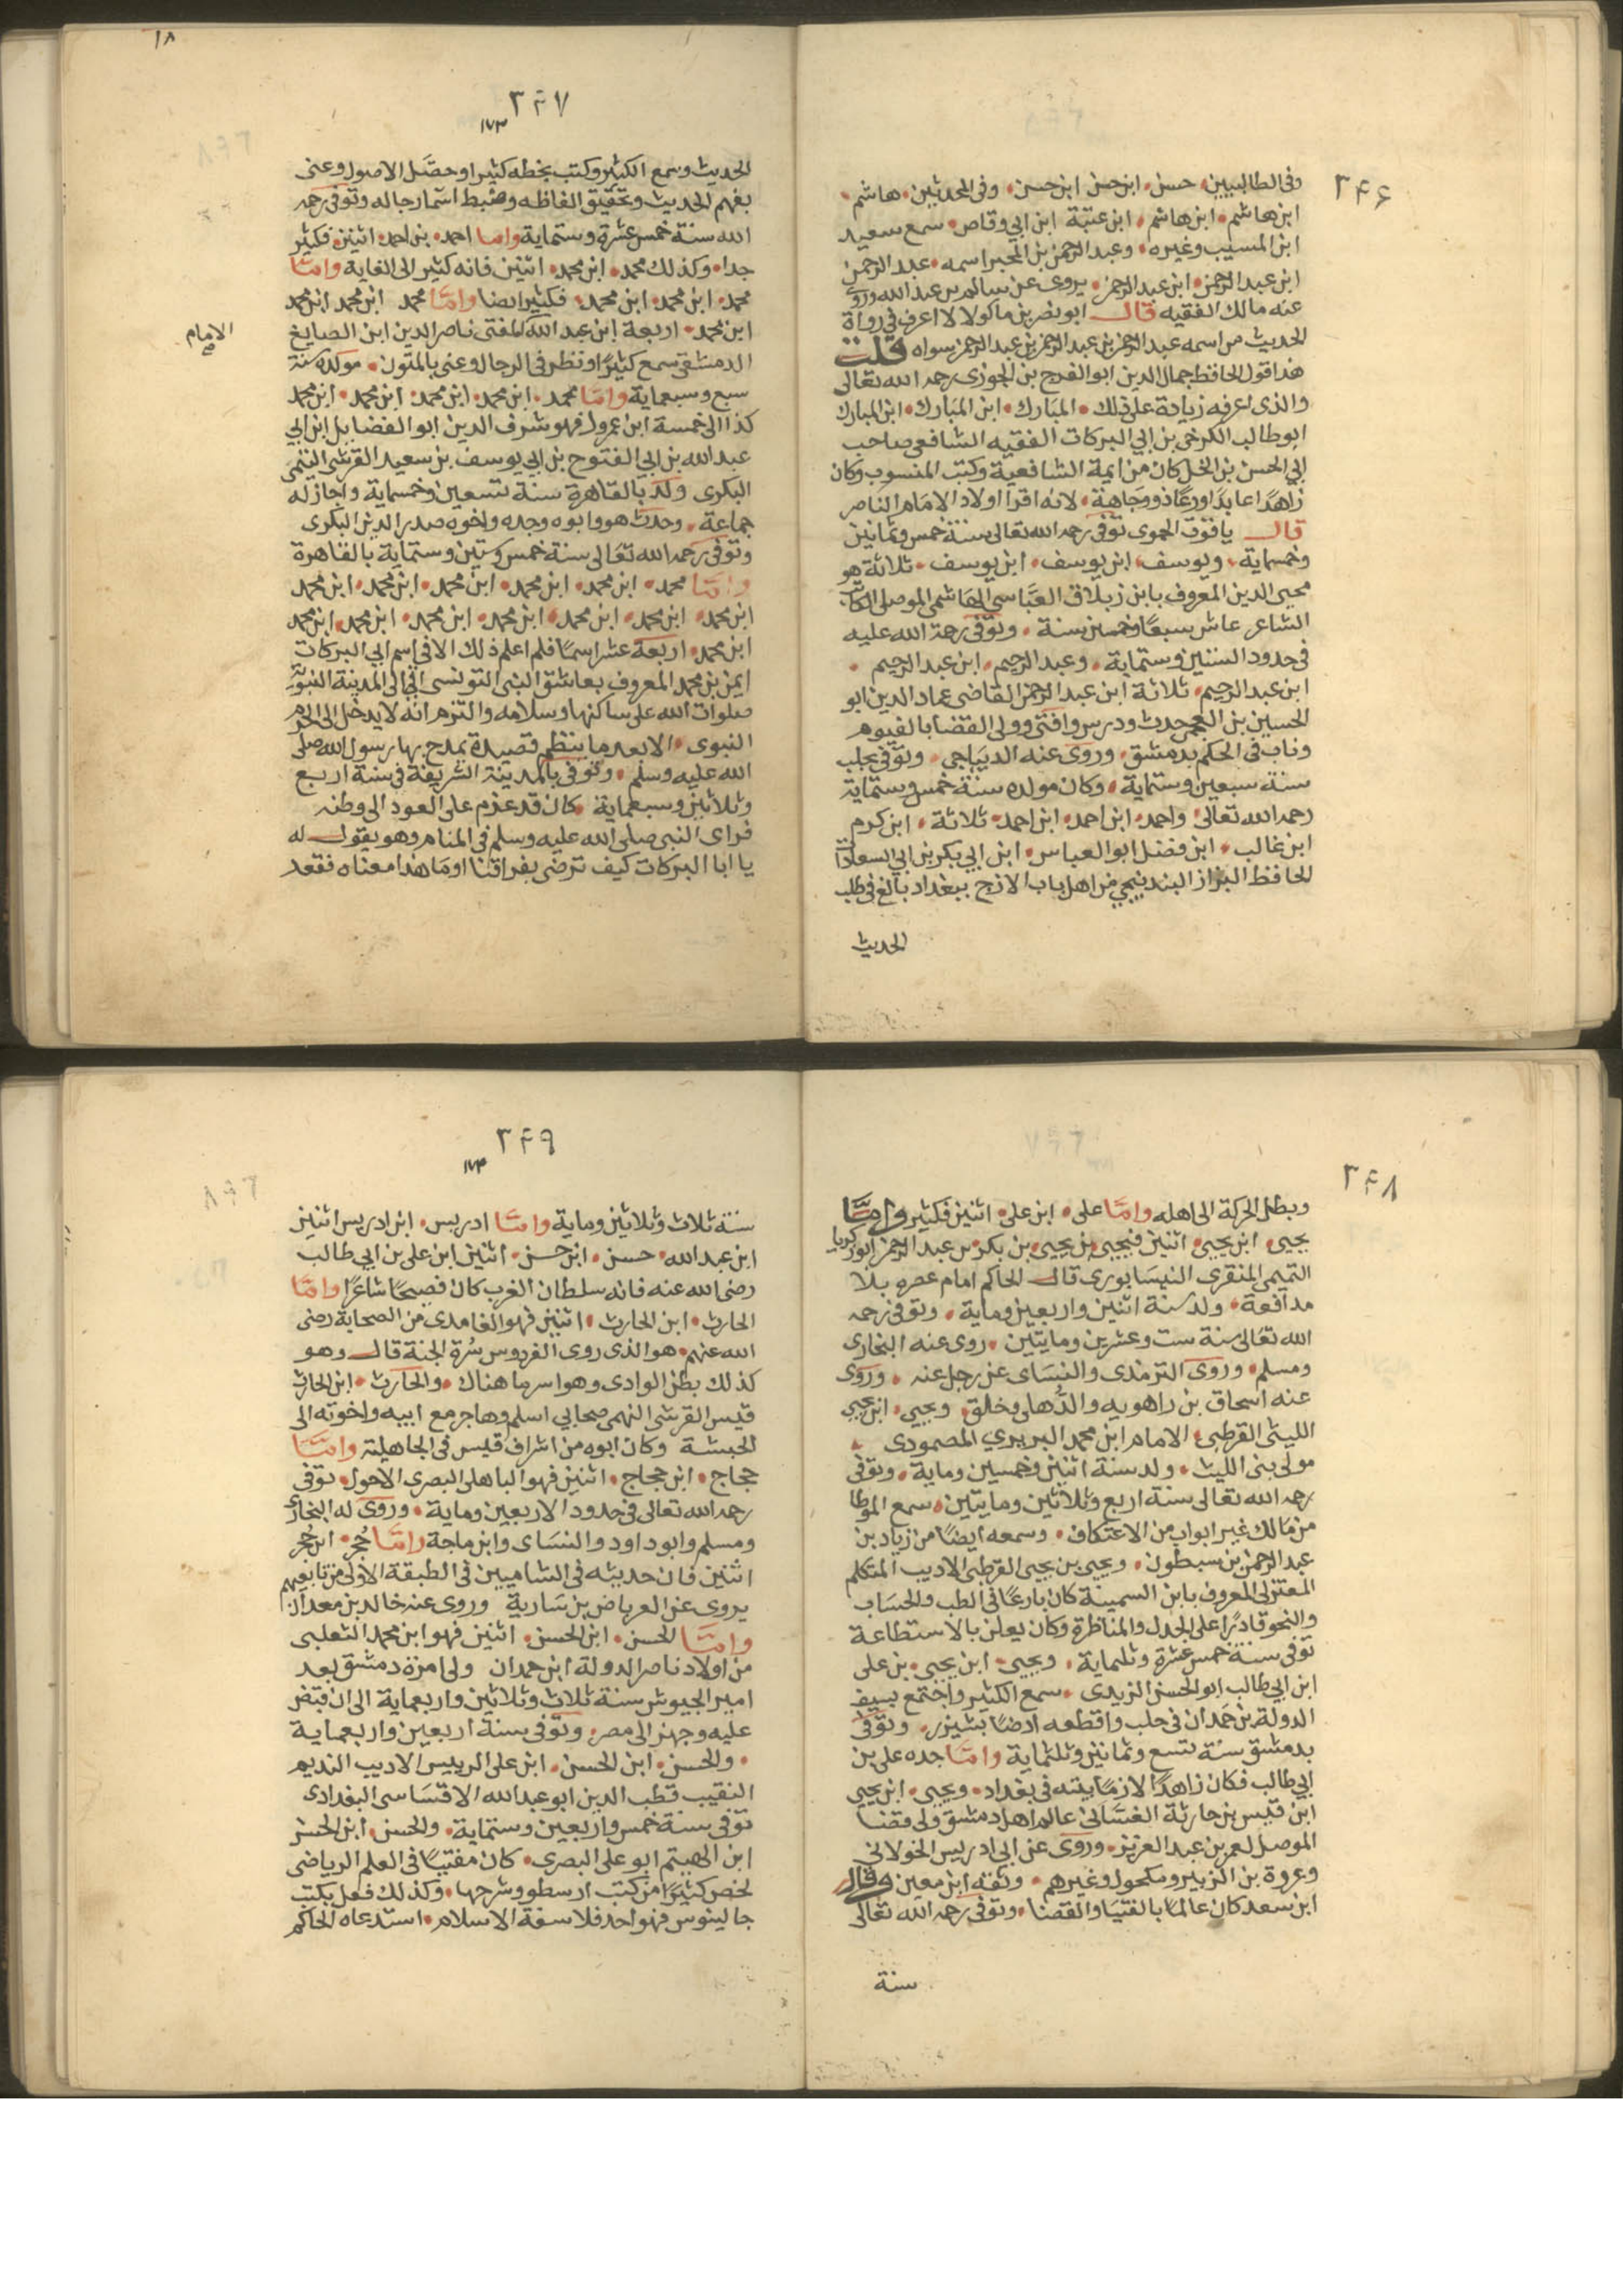 ٢٤٦
وفى الطالبيين حسن ابن حسن ابن حسن وفى المحدثين هاشم
ابن هاشم ابن هاشم ابن عتبة ابن ابي وقاص سمع سعيد
ابن المسيب وغيره وعبد الرحمن بن المجبر اسمه عبد الرحمن
ابن عبد الرحمن ابن عبد الرحمن يروى عن سالم بن عبد الله وروى
عنه مالك الفقيه قال ابو نصر بن ماكولا لا اعرف فى رواة
الحديث من اسمه عبد الرحمن بن عبد الرحمن بن عبد الرحمن سواه قلت
هذا قول الحافظ جمال الدين ابو الفرج بن الجوزى رحمه الله تعالى
والذى اعرفه زيادة على ذلك المبارك ابن المبارك ابن المبارك
ابو طالب الكرخى بن ابي البركات الفقيه الشافعى صاحب
ابي الحسن بن الخل كان من ايمة الشافعية وكتب المنسوب وكان
زاهدًا عابدًا ورعًا ذو وجاهة لانه اقرا اولاد الامام الناصر
قال ياقوت الحموى توفى رحمه الله تعالى سنة خمس وثمانين
وخمسماية ويوسف ابن يوسف ابن يوسف ثلاثة هو
محيى الدين المعروف بابن زبلاق العباسي الهاشمى الموصلى الكاتب
الشاعر عاش سبعًا وخمسين سنة وتوفى رحمة الله عليه
فى حدود الستين وستماية وعبد الرحيم ابن عبد الرحيم
ابن عبد الرحيم ثلاثة ابن عبد الرحمن القاضى عماد الدين ابو
الحسين بن العجمى حدث ودرس وافتى وولى القضا بالفيوم
وناب فى الحكم بدمشق وروى عنه الديباجى وتوفى بحلب
سنة سبعين وستماية وكان مولده سنة خمس وستماية
رحمه الله تعالى واحمد ابن احمد ابن احمد ثلاثة ابن كرم
ابن غالب ابن فضل ابو العباس ابن ابي بكر بن ابي السعادات
الحافظ البزاز البندنيجي من اهل باب الازج ببغداد بالغ فى طلب
الحديث
١٨
٢٤٧
١٧٣
الحديث وسمع الكثير وكتب بخطه كثيرا وحصَّل الاصول وعنى
بفهم الحديث وتحقيق الفاظه وضبط اسما رجاله وتوفى رحمه
الله سنة خمس عشرة وستماية واما احمد بن احمد اثنين فكثير
جدا وكذلك محمد ابن محمد اثنين فانه كثير الى الغاية وامّا
محمد ابن محمد ابن محمد فكثير ايضا وامّا محمد ابن محمد ابن محمد
ابن محمد اربعة ابن عبد الله المفتى ناصر الدين ابن الصايغ
الامام صح
الدمشقى سمع كثيرًا ونظر فى الرجال وعنى بالمتون مولده سنة
سبع وسبعماية وامّا محمد ابن محمد ابن محمد ابن محمد ابن محمد
كذا الى خمسة ابن عمروك فهو شرف الدين ابو الفضايل ابن ابي
عبد الله بن ابي الفتوح بن ابي يوسف بن سعيد القرشى التيمى
البكرى ولد بالقاهرة سنة تسعين وخمسماية واجاز له
جماعة وحدث هو وابوه وجده واخوه صدر الدين البكرى
وتوفى رحمه الله تعالى سنة خمس وستين وستماية بالقاهرة
وامّا محمد ابن محمد ابن محمد ابن محمد ابن محمد ابن محمد
ابن محمد ابن محمد ابن محمد ابن محمد ابن محمد ابن محمد ابن محمد
ابن محمد اربعة عشر اسمًا فلم اعلم ذلك الا فى اسم ابي البركات
ايمن بن محمد المعروف بعاشق النبى التونسى اتى الى المدينة النبوية
صلوات الله على ساكنها وسلامه والتزم انه لا يدخل الى الحرم
النبوى الا بعد ما ينظم قصيدة يمدح بها رسول الله صلى
الله عليه وسلم وتوفى بالمدينة الشريفة فى سنة اربع
وثلاثين وسبعماية كان قد عزم على العود الى وطنه
فراى النبى صلى الله عليه وسلم فى المنام وهو يقول له
يا ابا البركات كيف ترضى بفراقنا او ما هذا معناه فقعد
٢٤٨
وبطل الحركة الى اهله وامّا على ابن على اثنين فكثير وامّا
يحيى ابن يحيى اثنين فيحيى بن يحيى بن بكر بن عبد الرحمن ابو زكريا
التميمى المنقرى النيسابورى قال الحاكم امام عصره بلا
مدافعة ولد سنة اثنين واربعين وماية وتوفى رحمه
الله تعالى سنة ست وعشرين ومايتين روى عنه البخارى
ومسلم وروى الترمذى والنسَاى عن رجل عنه وروى
عنه اسحاق بن راهويه والذُّهلى وخلق ويحيى ابن يحيى
الليثى القرطبى الامام ابن محمد البربري المصمودى
مولى بنى الليث ولد سنة اثنين وخمسين وماية وتوفى
رحمه الله تعالى سنة اربع وثلاثين ومايتين سمع الموطا
من مالك غير ابواب من الاعتكاف وسمعه ايضًا من زياد بن
عبد الرحمن بن سبطون ويحيى بن يحيى القرطبى الاديب المتكلم
المعتزلى المعروف بابن السمينة كان بارعًا فى الطب والحسَاب
والنحو قادرًا على الجدل والمناظرة وكان يعلن بالاستطاعة
توفى سنة خمس عشرة وثلماية ويحيى ابن يحيى بن على
ابن ابي طالب ابو الحسن الزيدى سمع الكثير واجتمع بسيف
الدولة بن حمدان فى حلب واقطعه ارضًا بشيزر وتوفى
بدمشق سنة تسع وثمانين وثلثماية وامّا جده على بن
ابي طالب فكان زاهدًا لازمًا بيته فى بغداد ويحيى ابن يحيى
ابن قيس بن حارثة الغسّانى عالم اهل دمشق ولى قضا
الموصل لعمر بن عبد العزيز وروى عن ابى ادريس الخولانى
وعروة بن الزبير ومكحول وغيرهم وثقه ابن معين وقال
ابن سعد كان عالمًا بالفتيا والقضا وتوفى رحمه الله تعالى
سنة
٢٤٩
١٧٤
سنة ثلاث وثلاثين وماية وامّا ادريس ابن ادريس اثنين
ابن عبد الله حسن ابن حسن اثنين ابن على بن ابي طالب
رضى الله عنه فانه سلطان الغرب كان فصيحًا شاعرًا وامّا
الحارث ابن الحارث اثنين فهو الغامدى من الصحابة رضى
الله عنهم هو الذى روى الفردوس سُرة الجنة قال وهو
كذلك بطن الوادى وهو اسر ما هناك والحارث ابن الحارث
قيس القرشى السهمى صحابي اسلم وهاجر مع ابيه واخوته الى
الحبشة وكان ابوه من اشراف قيس فى الجاهلية وامّا
حجاج ابن حجاج اثنين فهو الباهلى البصرى الاحول توفى
رحمه الله تعالى فى حدود الاربعين وماية وروى له البخارى
ومسلم وابو داود والنسَاى وابن ماجة وامّا حُجر ابن حُجر
اثنين فان حديثه فى الشاميين فى الطبقة الاولى من تابعيهم
يروى عن العرباض بن سَارية وروى عنه خالد بن معدان
وامّا الحسن ابن الحسن اثنين فهو ابن محمد الثعلبى
من اولاد ناصر الدولة ابن حمدان ولى امرة دمشق بعد
امير الجيوش سنة ثلاث وثلاثين واربعماية الى ان قبض
عليه وجهز الى مصر وتوفى سنة اربعين واربعماية
والحسن ابن الحسن ابن على الرييس الاديب النديم
النقيب قطب الدين ابو عبد الله الاقسَاسى البغدادى
توفى سنة خمس واربعين وستماية والحسن ابن الحسن
ابن الهيثم ابو على البصرى كان مفتيًا فى العلم الرياضى
لخص كثيرًا من كتب ارسطو وشرحها وكذلك فعل بكتب
جالينوس فهو احد فلاسفة الاسلام استدعاه الحاكم